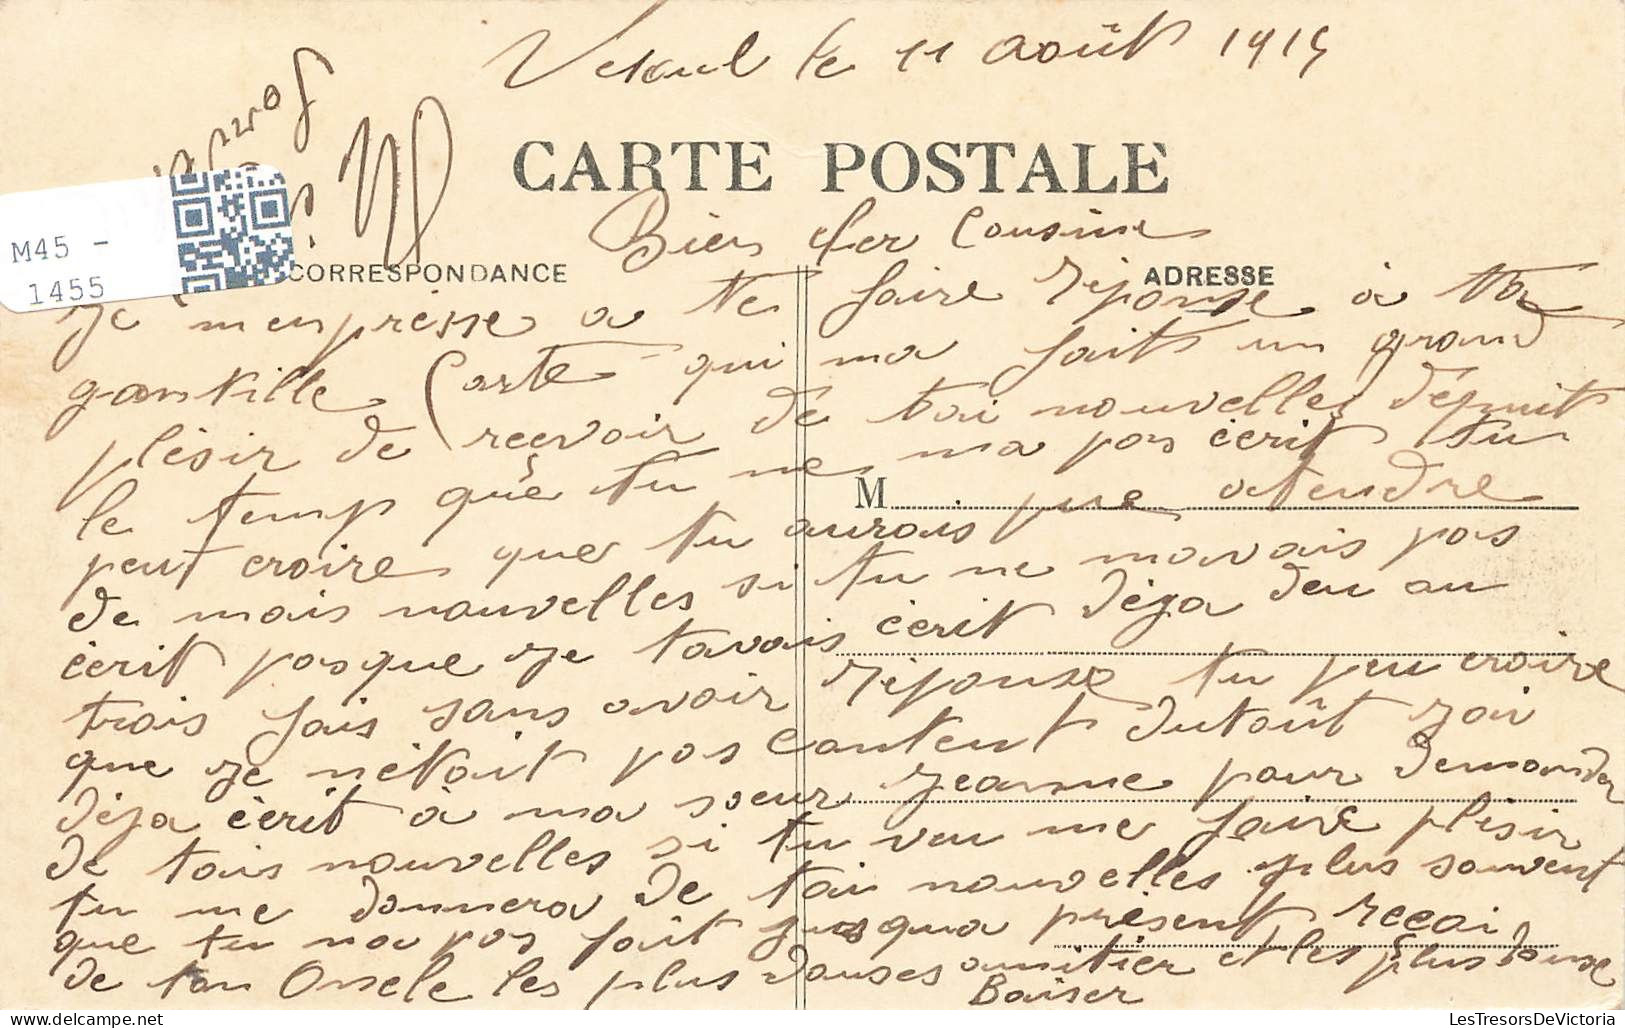 Vesoul le 11 août 1915
CARTE POSTALE
Bien cher Cousine
CORRESPONDANCE
ADRESSE
M45 -
1455
Je m'enpresse a te faire réponse à ta
gantille Carte qui ma fait un grand
plésir de recevoir de toi nouvelles dépuit
le temp que tu ne ma pas écrit tu
M
peut croire que tu aurais pue atendre
de mais nouvelles si tu ne mavais pas
écrit pasque je tavais écrit déja deu au
trois fois sans avoir réponse tu peu croire
que je nétait pas content dutoût jai
déja écrit à ma soeur Jeanne pour demander
de tais nouvelles si tu veu me faire plésir
tu me donnera de toi nouvelles plus souvent
que tu na pas fait jusqua présent recoi
de ton Oncle les plus douses amitier et les plus douse
Baiser
LesTresorsDeVictoria